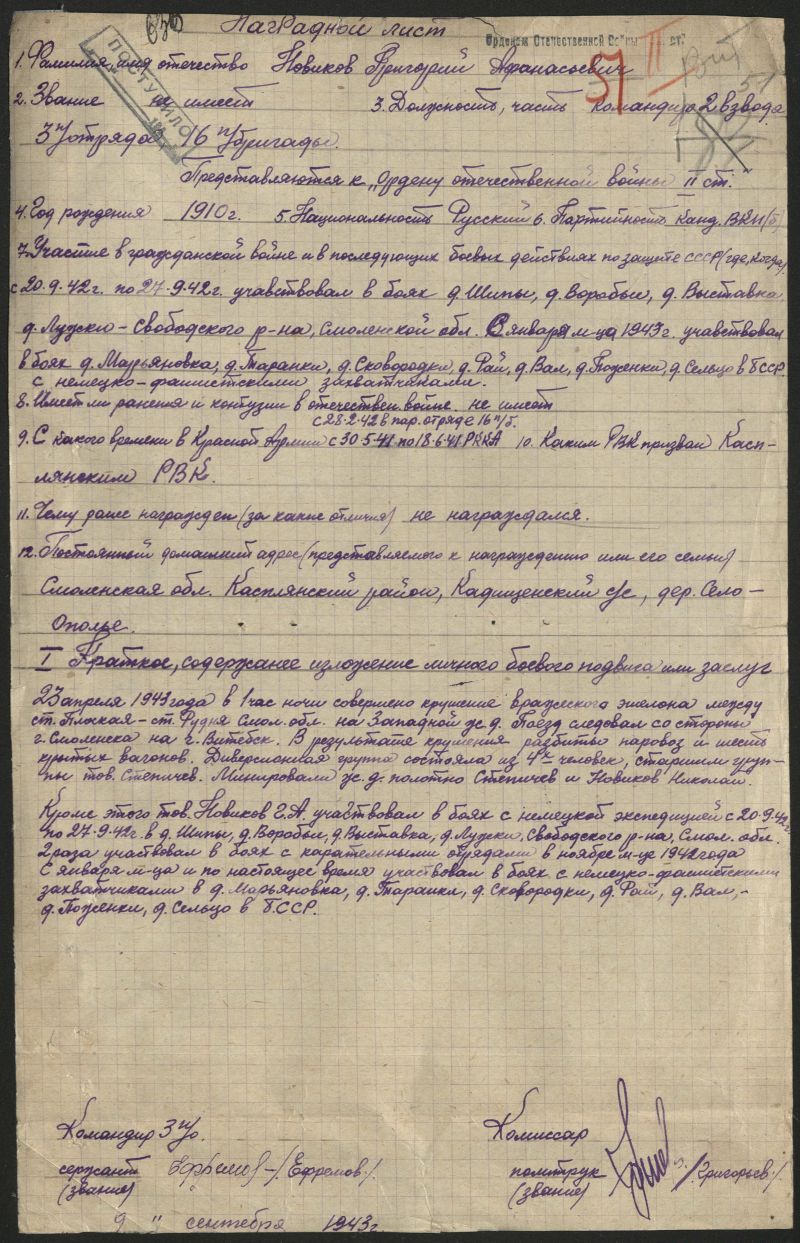 Наградной лист
Орденом Отечественной Войны II ст.
ПОСТУПИЛО
57
51
1. Фамилия имя отечество Новиков Григорий Афанасьевич
2. Звание не имеет 3. Должность, часть командир 2 взвода
3 п/отряда 16 п/бригады.
Представляются к „Ордену отечественной войны II ст."
4. Год рождения 1910 г. 5. Национальность Русский 6. Партийность Канд. ВКП(б)
7. Участие в гражданской войне и в последующих боевых действиях по защите СССР (где, когда)
с 20.9.42 г. по 27.9.42 г. учавствовал в боях д. Шипы, д. Воробьи, д. Выставка
д. Лузки – Свободского р-на, Смоленской обл. С января м-ца 1943 г. учавствовал
в боях д. Марьяновка, д. Таранки, д. Сковородки, д. Рай, д. Вал, д. Поженки, д. Сельцо в БССР
с немецко-фашистскими захватчиками.
8. Имеет ли ранения и контузии в отечествен. войне не имеет
с 28.2.42 в пар. отряде 16 п/б.
9. С какого времени в Красной Армии с 30.5.41 по 18.6.41 РККА 10. Каким РВК призван Касп-
лянским РВК.
11. Чему ранее награжден (за какие отличия) не награждался.
12. Постоянный домашний адрес (представляемого к награждению или его семьи)
Смоленская обл. Касплянский район, Кадищенский с/с, дер. Село-
Ополье.
I Краткое, содержанее изложение личного боевого подвига или заслуг
23 апреля 1943 года в 1 час ночи совершено крушение вражеского эшелона между
ст. Плоская – ст. Рудня Смол. обл. на Западной ж.д. Поезд следовал со стороны
г. Смоленска на г. Витебск. В результате крушения разбиты паровоз и шесть
крытых вагонов. Диверсионная группа состояла из 4х человек, старшим груп-
пы тов. Степичев. Минировали ж.д. полотно Степичев и Новиков Николай.
Кроме этого тов. Новиков Г.А. участвовал в боях с немецкой экспедицией с 20.9.42 г
по 27.9.42 г. в д. Шипы, д. Воробьи, д. Выставка, д. Лузки, Свободского р-на, Смол. обл.
2 раза участвовал в боях с карательными отрядами в ноябре м-це 1942 года
С января м-ца и по настоящее время участвовал в боях с немецко-фашистскими
захватчиками в д. Марьяновка, д. Таранки, д. Сковородки, д. Рай, д. Вал, –
д. Поженки, д. Сельцо в БССР.
Командир 3 п/о. Комиссар
сержант Ефремов – /Ефремов./ политрук /Григорьев./
(звание) (звание)
9 " сентября 1943 г.